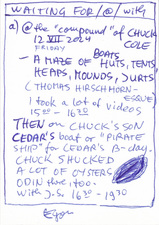 WAITING FOR/@/with
a) @ the "compound" of CHUCK COLE
12 VII 2024
FRIDAY
BOATS
– A MAZE OF HUTS, TENTS,
HEAPS, MOUNDS, JURTS
(THOMAS HIRSCHHORN-
ESQUE)
I took a lot of videos
15:00 – 16:30
THEN on CHUCK'S SON
CEDAR'S boat or "PIRATE
SHIP" for CEDAR'S B-day.
CHUCK SHUCKED
A LOT OF OYSTERS
ODIN there, too.
with J.S. 16:30 – 19:30